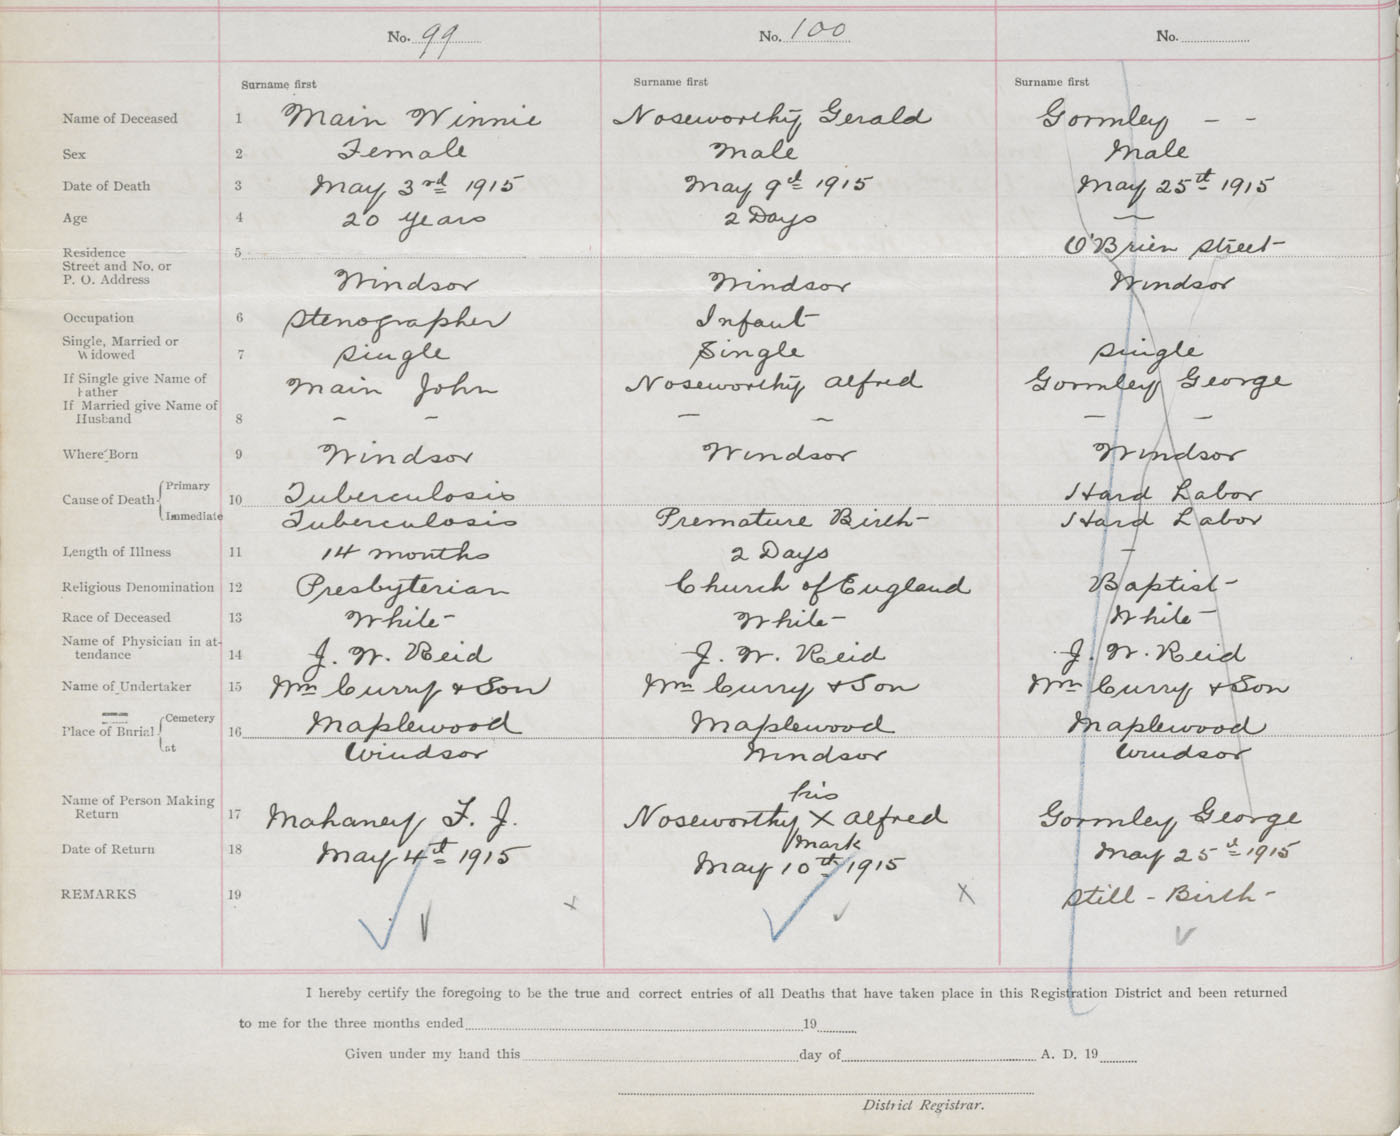 No. 99 No. 100 No.
Surname first Surname first Surname first
Name of Deceased 1 Main Winnie Noseworthy Gerald Gormley - -
Sex 2 Female Male Male
Date of Death 3 May 3rd 1915 May 9th 1915 May 25th 1915
Age 4 20 years 2 Days —
Residence 5 O'Brien Street
Street and No. or
P. O. Address Windsor Windsor Windsor
Occupation 6 Stenographer Infant
Single, Married or
Widowed 7 Single Single Single
If Single give Name of
Father Main John Noseworthy Alfred Gormley George
If Married give Name of
Husband 8 - - - - - -
Where Born 9 Windsor Windsor Windsor
Cause of Death Primary 10 Tuberculosis Hard Labor
Immediate Tuberculosis Premature Birth Hard Labor
Length of Illness 11 14 months 2 Days -
Religious Denomination 12 Presbyterian Church of England Baptist
Race of Deceased 13 White White White
Name of Physician in at-
tendance 14 J. W. Reid J. W. Reid J. W. Reid
Name of Undertaker 15 Wm Curry & Son Wm Curry & Son Wm Curry & Son
Place of Burial Cemetery 16 Maplewood Maplewood Maplewood
at Windsor Windsor Windsor
his
Name of Person Making
Return 17 Mahaney F. J. Noseworthy X Alfred Gormley George
mark
Date of Return 18 May 4th 1915 May 10th 1915 May 25th 1915
REMARKS 19 Still - Birth -
x X
I hereby certify the foregoing to be the true and correct entries of all Deaths that have taken place in this Registration District and been returned
to me for the three months ended 19
Given under my hand this day of A. D. 19
District Registrar.